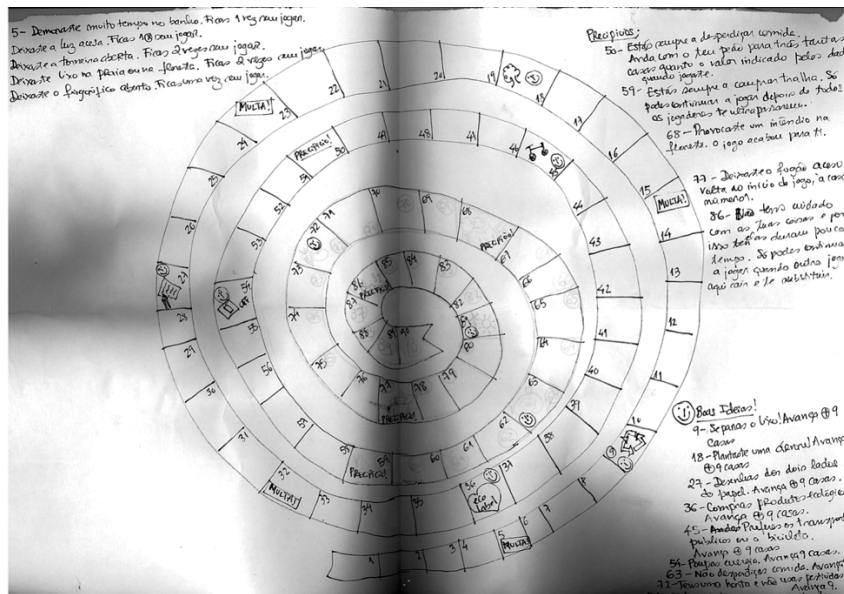 5- Demoraste muito tempo no banho. Ficas 1 vez sem jogar.
Deixaste a luz acesa. Ficas sem jogar.
Deixaste a torneira aberta. Ficas 2 vezes sem jogar.
Deixaste lixo na praia ou na floresta. Ficas 2 vezes sem jogar.
Deixaste o frigorífico aberto. Ficas uma vez sem jogar.
Precipícios:
50- Estás sempre a desperdiçar comida.
Anda com o teu peão para trás tantas
casas quanto o valor indicado pelos dad
quando jogaste.
59- Estás sempre a comprar tralha. Só
podes continuar a jogar depois de todos
os jogadores te ultrapassarem.
68- Provocaste um incêndio na
floresta. O jogo acabou para ti.
77- Deixaste o fogão aceso
volta ao início do jogo, à casa
número 1.
86- Não tens cuidado
com as tuas coisas e por
isso duram pouco
tempo. Só podes continua
a jogar quando outro joga
aqui cair e te substituir.
Boas Ideias!
9- Separas o lixo! Avança 9
casas
18- Plantaste uma árvore! Avança
9 casas
27- Desenhas dos dois lados
do papel. Avança 9 casas.
36- Compras produtos ecológic
Avança 9 casas.
45- Preferes os transport
públicos ou a bicicleta.
Avança 9 casas
54- Poupas energia. Avança 9 casas.
63- Não desperdiças comida. Avança
72- Tens uma horta e não usas pesticidas
Avança 9.
1 2 3 4 5 6 7 8 9 10
MULTA!
11 12 13 14 15 16
MULTA!
18 19 20 21 22 23
MULTA!
24 25 26 27 28 29 30 31 32
MULTA!
33 34 35 36
eco
label
37 38 39 40 41 42 43 44 45 46
48 49 50
PRECIPÍCIO!
51 52 53 54
OFF
55 56 57 58 59
PRECIPÍCIO!
60 61 62 63 64 65 66 67 68
PRECIPÍCIO!
69 70 71 72 73 74 75 76 77
PRECIPÍCIO!
78 79 80 81 82 83 84 85 86
PRECIPÍCIO!
87 88 89 90